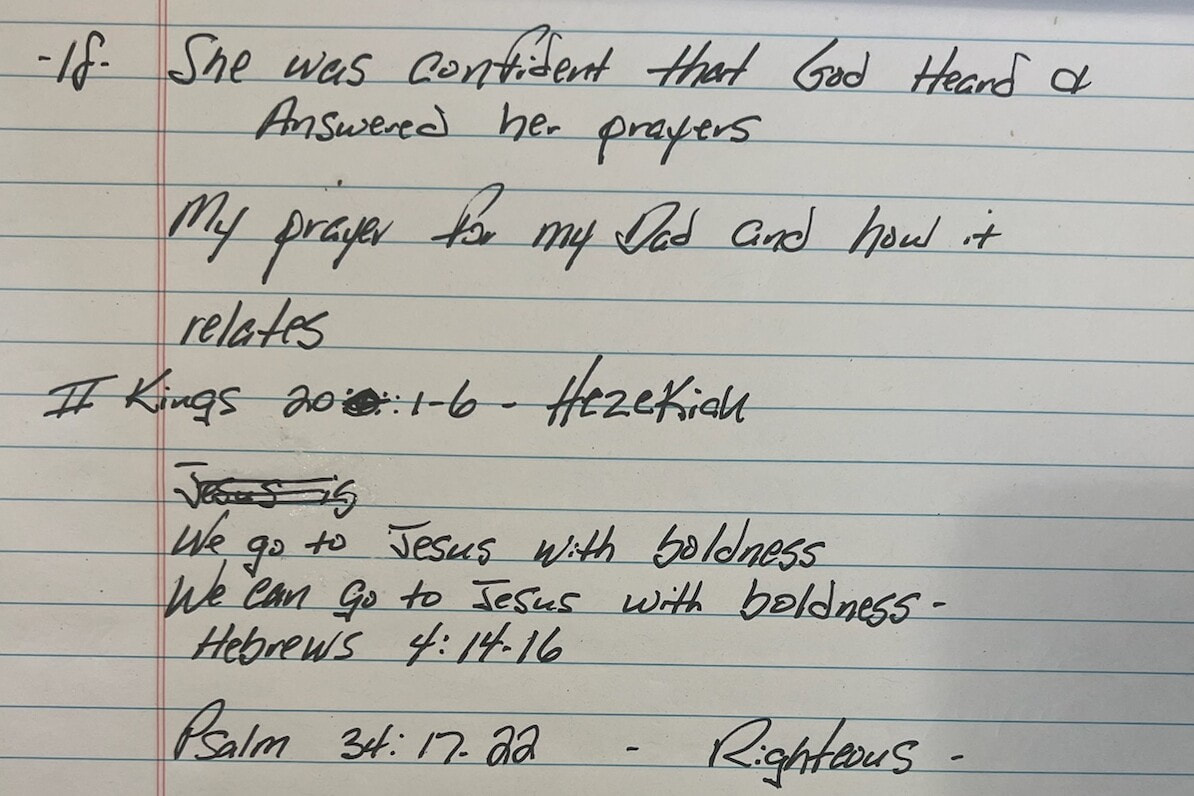 -18- She was confident that God Heard &
Answered her prayers
My prayer for my Dad and how it
relates
II Kings 20:1-6 - Hezekiah
Jesus is
We go to Jesus with boldness
We can go to Jesus with boldness -
Hebrews 4:14-16
Psalm 34:17-22 - Righteous -